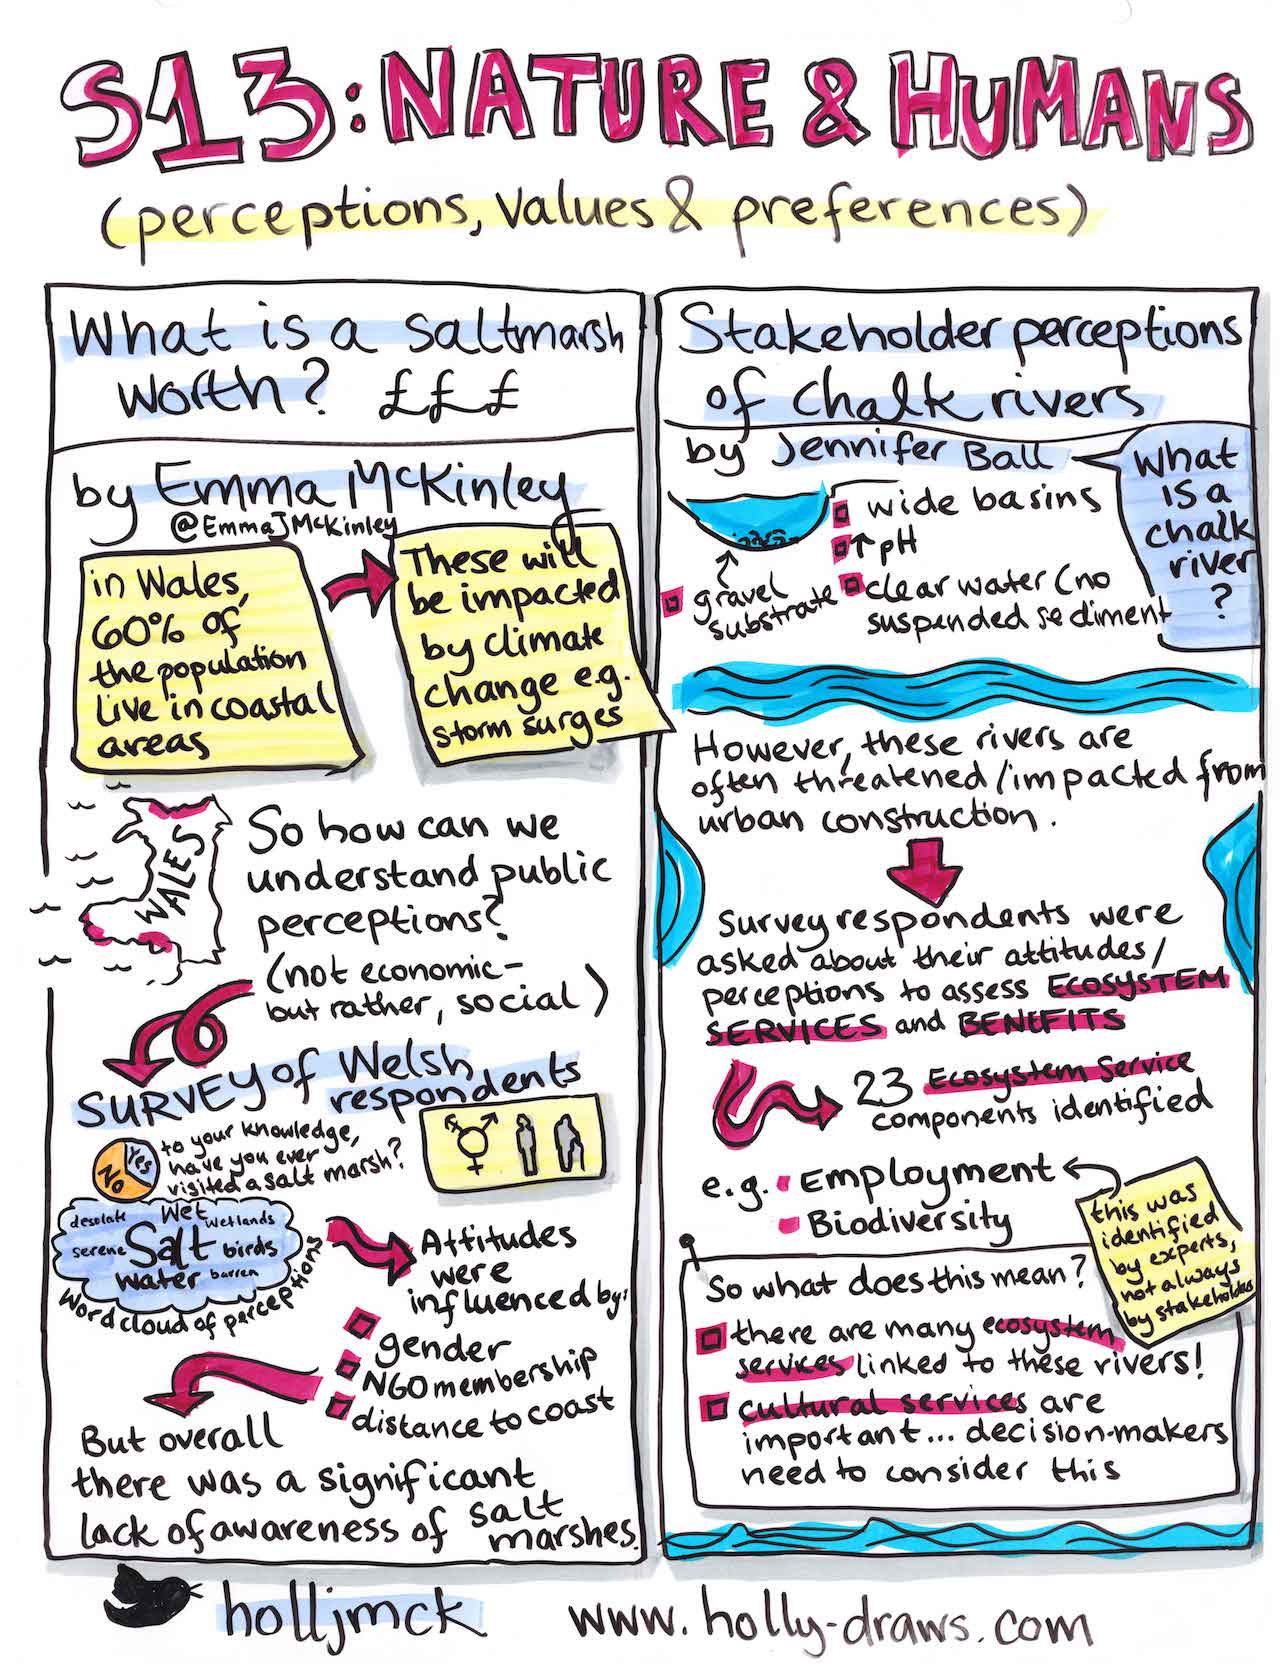 S13: NATURE & HUMANS
(perceptions, values & preferences)
What is a saltmarsh
worth? £££
by Emma McKinley
@EmmaJMcKinley
in Wales,
60% of
the population
live in coastal
areas
These will
be impacted
by climate
change e.g.
storm surges
WALES
So how can we
understand public
perceptions?
(not economic-
but rather, social)
SURVEY of Welsh
respondents
Yes
No
to your knowledge,
have you ever
visited a salt marsh?
desolate Wet wetlands
serene Salt birds
water barren
Word cloud of perceptions
Attitudes
were
influenced by:
gender
NGO membership
distance to coast
But overall
there was a significant
lack of awareness of salt
marshes.
Stakeholder perceptions
of chalk rivers
by Jennifer Ball
What
is a
chalk
river
?
wide basins
↑ pH
clear water (no
suspended sediment
gravel
substrate
However, these rivers are
often threatened/impacted from
urban construction.
Survey respondents were
asked about their attitudes/
perceptions to assess ECOSYSTEM
SERVICES and BENEFITS
23 Ecosystem Service
components identified
e.g. Employment
Biodiversity
this was
identified
by experts,
not always
by stakeholders
So what does this mean?
there are many ecosystem
services linked to these rivers!
cultural services are
important... decision-makers
need to consider this
holljmck
www.holly-draws.com